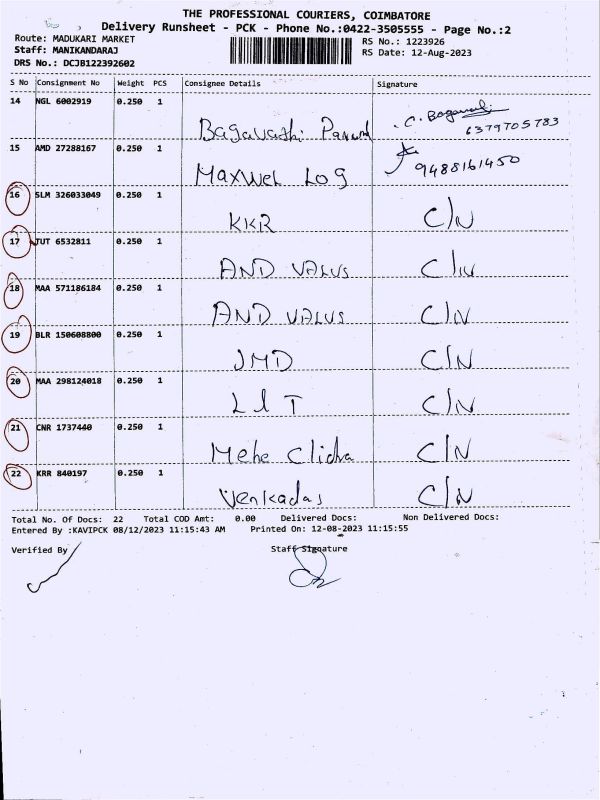 THE PROFESSIONAL COURIERS, COIMBATORE
Delivery Runsheet - PCK - Phone No.:0422-3505555 - Page No.:2
Route: MADUKARI MARKET RS No.: 1223926
Staff: MANIKANDARAJ RS Date: 12-Aug-2023
DRS No.: DCJB122392602
S No Consignment No Weight PCS Consignee Details Signature
14 NGL 6002919 0.250 1 Bagavathi C. Bagavathi
6379705783
15 AMD 27288167 0.250 1 Maxwel Log 9488161450
16 SLM 326033049 0.250 1 KKR C/N
17 TUT 6532811 0.250 1 AND VALVS C/N
18 MAA 571186184 0.250 1 AND VALVS C/N
19 BLR 150608800 0.250 1 JMD C/N
20 MAA 298124018 0.250 1 L&T C/N
21 CNR 1737440 0.250 1 C/N
22 KRR 840197 0.250 1 Venkadas C/N
Total No. Of Docs: 22 Total COD Amt: 0.00 Delivered Docs: Non Delivered Docs:
Entered By :KAVIPCK 08/12/2023 11:15:43 AM Printed On: 12-08-2023 11:15:55
Verified By Staff Signature